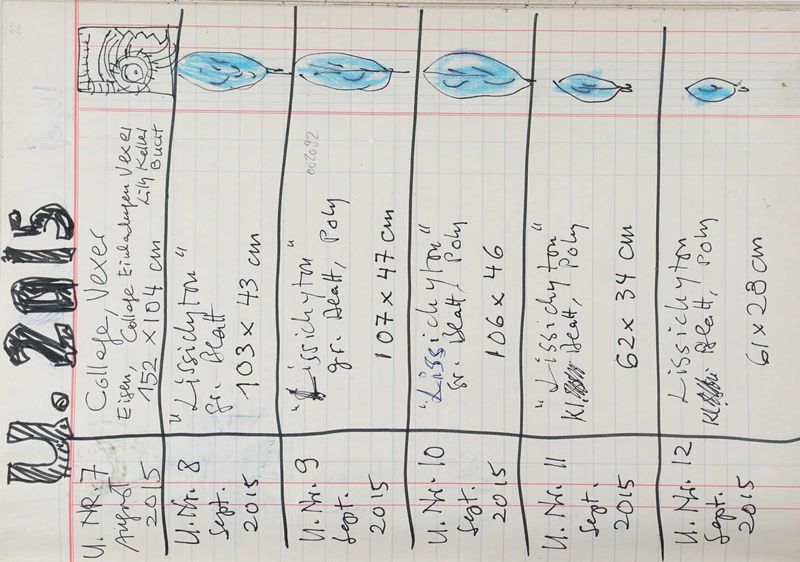 22
U. 2015
U. NR. 7
August
2015
Collage, Vexer
Eisen, Collage Einladungen Vexer
Lily Keller
Buch
152 x 104 cm
U. Nr. 8
Sept.
2015
"Lissichyton"
gr. Blatt
103 x 43 cm
U. Nr. 9
Sept.
2015
"Lissichyton"
gr. Blatt, Poly
107 x 47 cm
U. Nr. 10
Sept.
2015
"Lissichyton"
gr. Blatt, Poly
106 x 46
U. Nr. 11
Sept.
2015
"Lissichyton"
Kl. Blatt, Poly
62 x 34 cm
U. Nr. 12
Sept.
2015
Lissichyton
Kl. Blatt, Poly
61 x 28 cm